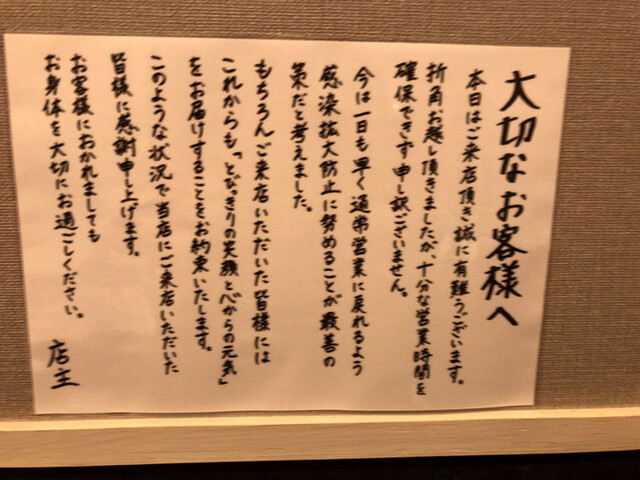 大切なお客様へ
本日はご来店頂き誠に有難うございます。
折角お越し頂きましたが、十分な営業時間を
確保できず申し訳ございません。
今は一日も早く通常営業に戻れるよう
感染拡大防止に努めることが最善の
策だと考えました。
もちろんご来店いただいた皆様には
これからも「とびっきりの笑顔とべからの元気」
をお届けすることをお約束いたします。
このような状況で当店にご来店いただいた
皆様に感謝申し上げます。
お客様におかれましても
お身体を大切にお過ごしください。
店主